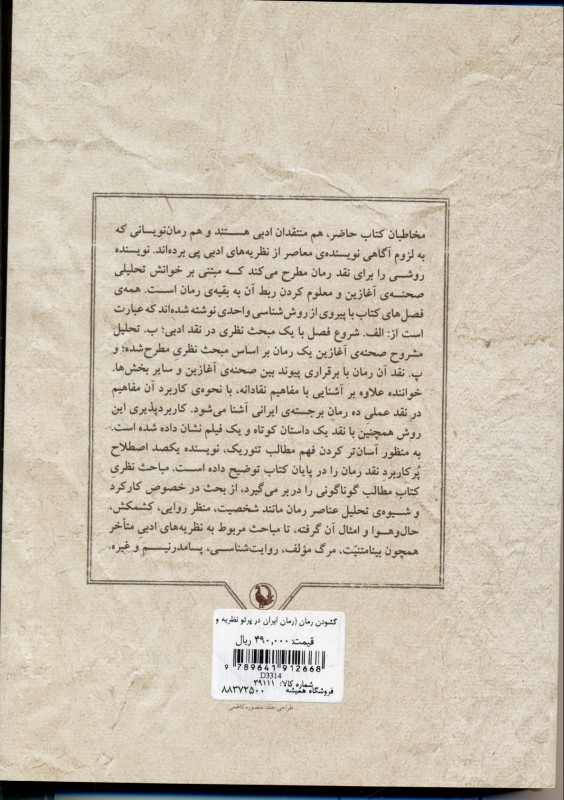 مخاطبان کتاب حاضر، هم منتقدان ادبی هستند و هم رمان‌نویسانی که
به لزوم آگاهی نویسنده‌ی معاصر از نظریه‌های ادبی پی برده‌اند. نویسنده
روشی را برای نقد رمان مطرح می‌کند که مبتنی بر خوانش تحلیلی
صحنه‌ی آغازین و معلوم کردن ربط آن به بقیه‌ی رمان است. همه‌ی
فصل‌های کتاب با پیروی از روش‌شناسی واحدی نوشته شده‌اند که عبارت
است از: الف. شروع فصل با یک مبحث نظری در نقد ادبی؛ ب. تحلیل
مشروح صحنه‌ی آغازین یک رمان بر اساس مبحث نظری مطرح‌شده؛ و
پ. نقد آن رمان با برقراری پیوند بین صحنه‌ی آغازین و سایر بخش‌ها.
خواننده علاوه بر آشنایی با مفاهیم نقادانه، با نحوه‌ی کاربرد آن مفاهیم
در نقد عملی ده رمان برجسته‌ی ایرانی آشنا می‌شود. کاربردپذیری این
روش همچنین با نقد یک داستان کوتاه و یک فیلم نشان داده شده است.
به منظور آسان‌تر کردن فهم مطالب تئوریک، نویسنده یکصد اصطلاح
پُرکاربرد نقد رمان را در پایان کتاب توضیح داده است. مباحث نظری
کتاب مطالب گوناگونی را در بر می‌گیرد، از بحث در خصوص کارکرد
و شیوه‌ی تحلیل عناصر رمان مانند شخصیت، منظر روایی، کشمکش،
حال‌وهوا و امثال آن گرفته، تا مباحث مربوط به نظریه‌های ادبی متأخر
همچون بینامتنیّت، مرگ مؤلف، روایت‌شناسی، پسامدرنیسم و غیره.
کشودن رمان (رمان ایران در پرتو نظریه و
قیمت: ۴۹۰,۰۰۰ ریال
9 789641 912668
D3314
شماره کالا: ۲۹۱۱۱
فروشگاه همیشه ۸۸۳۷۲۵۰۰
طراحی جلد: منصوره کاظمی